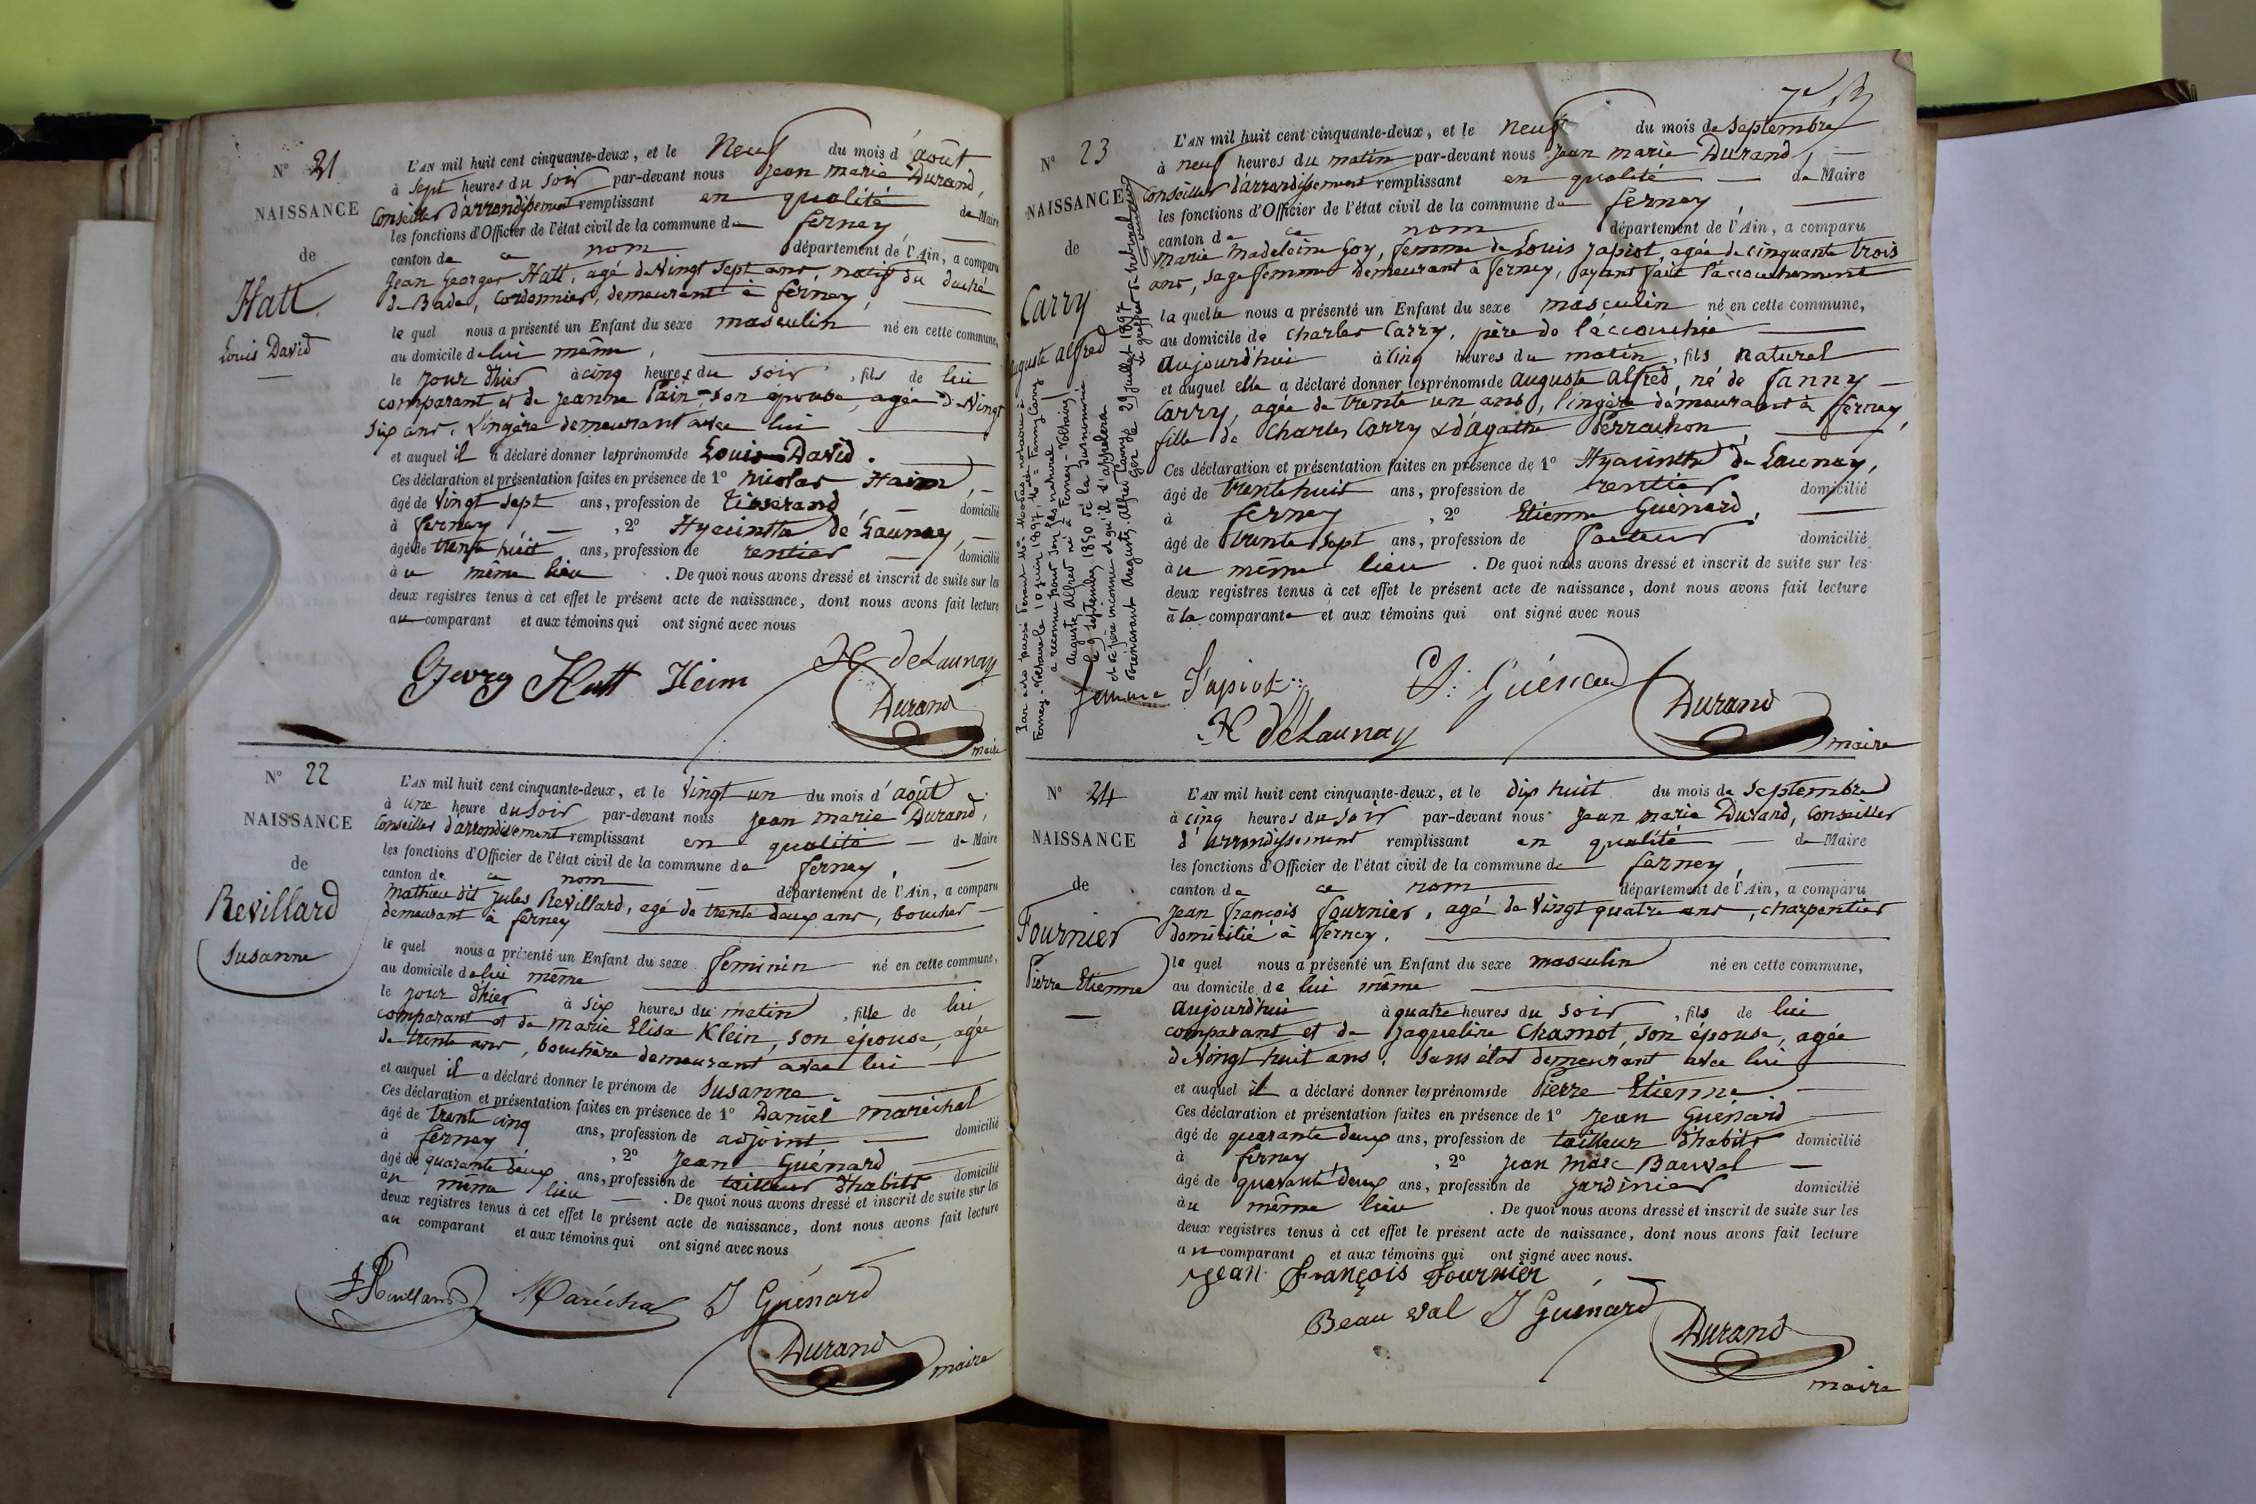 N° 21
NAISSANCE
de
Hatt
Louis David
L'AN mil huit cent cinquante-deux, et le Neuf du mois d'août
à sept heures du soir par-devant nous Jean marie Durand,
Conseiller d'arrondissement remplissant en qualité de Maire
les fonctions d'Officier de l'état civil de la commune de ferney,
canton de ce nom département de l'Ain, a comparu
Jean Georges Hatt, agé de Vingt sept ans, natif du duché
de Bade, Cordonnier, demeurant à ferney,
le quel nous a présenté un Enfant du sexe masculin né en cette commune,
au domicile de lui même,
le jour d'hier à cinq heures du soir, fils de lui
comparant et de jeanne Pain son épouse, agée de Vingt
six ans, Lingère demeurant avec lui
et auquel il a déclaré donner les prénoms de Louis David.
Ces déclaration et présentation faites en présence de 1° nicolas Haim,
âgé de Vingt sept ans, profession de tisserand, domicilié
à ferney, 2° Hyacinthe de Launay,
âgé de trente huit ans, profession de rentier domicilié
au même lieu . De quoi nous avons dressé et inscrit de suite sur les
deux registres tenus à cet effet le présent acte de naissance, dont nous avons fait lecture
au comparant et aux témoins qui ont signé avec nous
Georg Hatt Heim H deLaunay
Durand
maire
N° 22
NAISSANCE
de
Revillard
Susanne
L'AN mil huit cent cinquante-deux, et le Vingt un du mois d'août
à une heure du soir par-devant nous Jean marie Durand,
Conseiller d'arrondissement remplissant en qualité de Maire
les fonctions d'Officier de l'état civil de la commune de ferney,
canton de ce nom département de l'Ain, a comparu
mathieu dit jules Revillard, agé de trente deux ans, boucher
demeurant à ferney
le quel nous a présenté un Enfant du sexe feminin né en cette commune,
au domicile de lui même
le jour d'hier à six heures du matin, fille de lui
comparant et de marie Elisa Klein, son épouse, agée
de trente ans, bouchère demeurant avec lui
et auquel il a déclaré donner le prénom de Susanne.
Ces déclaration et présentation faites en présence de 1° Daniel maréchal
âgé de trente cinq ans, profession de adjoint domicilié
à ferney, 2° jean Guénard
âgé de quarante deux ans, profession de tailleur d'habits domicilié
au même lieu . De quoi nous avons dressé et inscrit de suite sur les
deux registres tenus à cet effet le présent acte de naissance, dont nous avons fait lecture
au comparant et aux témoins qui ont signé avec nous
J Revillard Maréchal J Guénard
Durand
maire
N° 23
NAISSANCE
de
Carry
auguste alfred
L'AN mil huit cent cinquante-deux, et le neuf du mois de Septembre
à neuf heures du matin par-devant nous Jean marie Durand,
Conseiller d'arrondissement remplissant en qualité de Maire
les fonctions d'Officier de l'état civil de la commune de ferney,
canton de ce nom département de l'Ain, a comparu
marie madeleine Goy, femme de Louis japiot, agée de cinquante trois
ans, sage femme demeurant à ferney, ayant fait l'accouchement
la quelle nous a présenté un Enfant du sexe masculin né en cette commune,
au domicile de Charles Carry, père de l'accouchée
aujourd'hui à cinq heures du matin, fils naturel
et auquel elle a déclaré donner les prénoms de auguste alfred, né de fanny
Carry, agée de trente un ans, lingère demeurant à ferney,
fille de Charles Carry & d'agathe Perrachon,
Ces déclaration et présentation faites en présence de 1° Hyacinthe de Launay,
âgé de trente huit ans, profession de rentier domicilié
à ferney, 2° Etienne Guénard,
âgé de trente sept ans, profession de facteur domicilié
au même lieu . De quoi nous avons dressé et inscrit de suite sur les
deux registres tenus à cet effet le présent acte de naissance, dont nous avons fait lecture
à la comparante et aux témoins qui ont signé avec nous
femme Japiot E. Guénard
H deLaunay Durand
maire
Par acte passé devant Me notaire à
Ferney-Voltaire le 10 juin 1897, Melle Fanny Carry
a reconnu pour son fils naturel
Auguste Alfred né à Ferney-Voltaire
le 9 septembre 1850 de la susnommée
et de père inconnu et qu'il s'appelera
dorénavant Auguste Alfred Carry
Gex le 29 juillet 1897
le greffier
N° 24
NAISSANCE
de
Fournier
Pierre Etienne
L'AN mil huit cent cinquante-deux, et le dix huit du mois de Septembre
à cinq heures du soir par-devant nous Jean marie Durand, Conseiller
d'arrondissement remplissant en qualité de Maire
les fonctions d'Officier de l'état civil de la commune de ferney,
canton de ce nom département de l'Ain, a comparu
jean françois fournier, agé de Vingt quatre ans, charpentier
domicilié à ferney.
le quel nous a présenté un Enfant du sexe masculin né en cette commune,
au domicile de lui même
aujourd'hui à quatre heures du soir, fils de lui
comparant et de jaqueline Chamot, son épouse, agée
de Vingt huit ans, sans état demeurant avec lui
et auquel il a déclaré donner les prénoms de Pierre Etienne
Ces déclaration et présentation faites en présence de 1° jean Guénard
âgé de quarante deux ans, profession de tailleur d'habits domicilié
à ferney, 2° jean marc Bauval
âgé de quarante deux ans, profession de jardinier domicilié
au même lieu . De quoi nous avons dressé et inscrit de suite sur les
deux registres tenus à cet effet le présent acte de naissance, dont nous avons fait lecture
au comparant et aux témoins qui ont signé avec nous.
jean françois fournier
Beau val J Guénard
Durand
maire